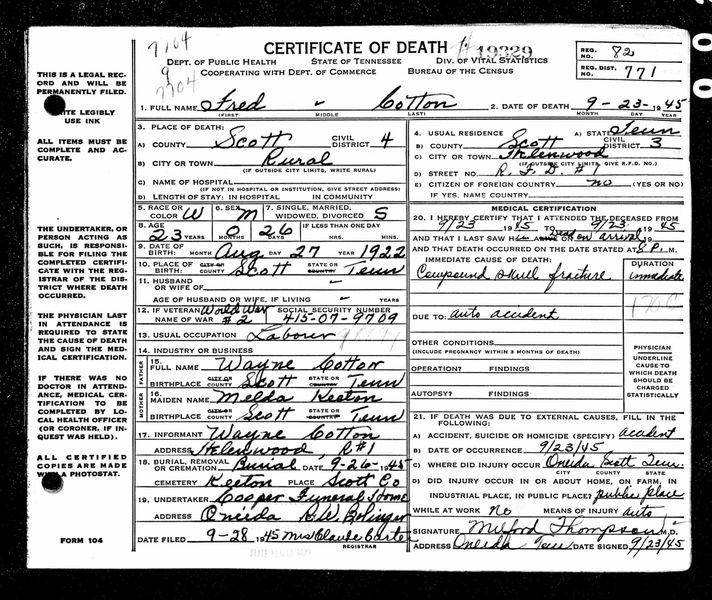 7704
9
7704
CERTIFICATE OF DEATH
19329
DEPT. OF PUBLIC HEALTH STATE OF TENNESSEE DIV. OF VITAL STATISTICS
COOPERATING WITH DEPT. OF COMMERCE BUREAU OF THE CENSUS
REG. NO. 82
REG. DIST. NO. 771
1. FULL NAME Fred - Cotton 2. DATE OF DEATH 9-23-1945
(FIRST) MIDDLE LAST) MONTH DAY YEAR
THIS IS A LEGAL RECORD AND WILL BE PERMANENTLY FILED.
WRITE LEGIBLY USE INK
ALL ITEMS MUST BE COMPLETE AND ACCURATE.
THE UNDERTAKER, OR PERSON ACTING AS SUCH, IS RESPONSIBLE FOR FILING THE COMPLETED CERTIFICATE WITH THE REGISTRAR OF THE DISTRICT WHERE DEATH OCCURRED.
THE PHYSICIAN LAST IN ATTENDANCE IS REQUIRED TO STATE THE CAUSE OF DEATH AND SIGN THE MEDICAL CERTIFICATION.
IF THERE WAS NO DOCTOR IN ATTENDANCE, MEDICAL CERTIFICATION TO BE COMPLETED BY LOCAL HEALTH OFFICER (OR CORONER, IF INQUEST WAS HELD).
ALL CERTIFIED COPIES ARE MADE A PHOTOSTAT.
FORM 104
3. PLACE OF DEATH:
A) COUNTY Scott CIVIL DISTRICT 4
B) CITY OR TOWN Rural
(IF OUTSIDE CITY LIMITS, WRITE RURAL)
C) NAME OF HOSPITAL
(IF NOT IN HOSPITAL OR INSTITUTION, GIVE STREET ADDRESS)
D) LENGTH OF STAY: IN HOSPITAL IN COMMUNITY
4. USUAL RESIDENCE A) STATE Tenn
B) COUNTY Scott CIVIL DISTRICT 3
C) CITY OR TOWN Helenwood
(IF OUTSIDE CITY LIMITS, GIVE R.F.D. NO.)
D) STREET NO. R.F.D. #1
E) CITIZEN OF FOREIGN COUNTRY no (YES OR NO)
IF YES, NAME COUNTRY
5. RACE OR COLOR W 6. SEX M 7. SINGLE, MARRIED, WIDOWED, DIVORCED S
8. AGE 23 0 26 IF LESS THAN ONE DAY
YEARS MONTHS DAYS HRS. MINS.
9. DATE OF BIRTH Aug DAY 27 YEAR 1922
MONTH
10. PLACE OF BIRTH CITY OR COUNTY Scott STATE OR COUNTRY Tenn
11. HUSBAND OR WIFE OF -
AGE OF HUSBAND OR WIFE, IF LIVING - YEARS
12. IF VETERAN NAME OF WAR World War #2 SOCIAL SECURITY NUMBER 415-07-9709
13. USUAL OCCUPATION Laborer
14. INDUSTRY OR BUSINESS
FATHER 15. FULL NAME Wayne Cotton
BIRTHPLACE CITY OR COUNTY Scott STATE OR COUNTRY Tenn
MOTHER 16. MAIDEN NAME Melda Keeton
BIRTHPLACE CITY OR COUNTY Scott STATE OR COUNTRY Tenn
17. INFORMANT Wayne Cotton
ADDRESS Helenwood, R#1
18. BURIAL, REMOVAL OR CREMATION Burial DATE 9-26-1945
CEMETERY Keeton PLACE Scott Co
19. UNDERTAKER Cooper Funeral Home
ADDRESS Oneida R.W. Bolinger
DATE FILED 9-28 1945 Mrs Claude Carter
REGISTRAR
MEDICAL CERTIFICATION
20. I HEREBY CERTIFY THAT I ATTENDED THE DECEASED FROM
9/23 1945 TO 9/23 1945
AND THAT I LAST SAW dead on arrival 19
AND THAT DEATH OCCURRED ON THE DATE STATED AT 8 P.M.
IMMEDIATE CAUSE OF DEATH: DURATION
Compound skull fracture immediate
170 C
DUE TO: auto accident
OTHER CONDITIONS:
(INCLUDE PREGNANCY WITHIN 3 MONTHS OF DEATH)
OPERATION? FINDINGS
AUTOPSY? FINDINGS
PHYSICIAN UNDERLINE CAUSE TO WHICH DEATH SHOULD BE CHARGED STATISTICALLY
21. IF DEATH WAS DUE TO EXTERNAL CAUSES, FILL IN THE FOLLOWING:
A) ACCIDENT, SUICIDE OR HOMICIDE (SPECIFY) accident
B) DATE OF OCCURRENCE 9/23/45
C) WHERE DID INJURY OCCUR Oneida Scott Tenn.
CITY COUNTY STATE
D) DID INJURY OCCUR IN OR ABOUT HOME, ON FARM, IN INDUSTRIAL PLACE, IN PUBLIC PLACE? public place
WHILE AT WORK No MEANS OF INJURY auto
SIGNATURE Milford Thompson M.D.
ADDRESS Oneida Tenn DATE SIGNED 9/23/45